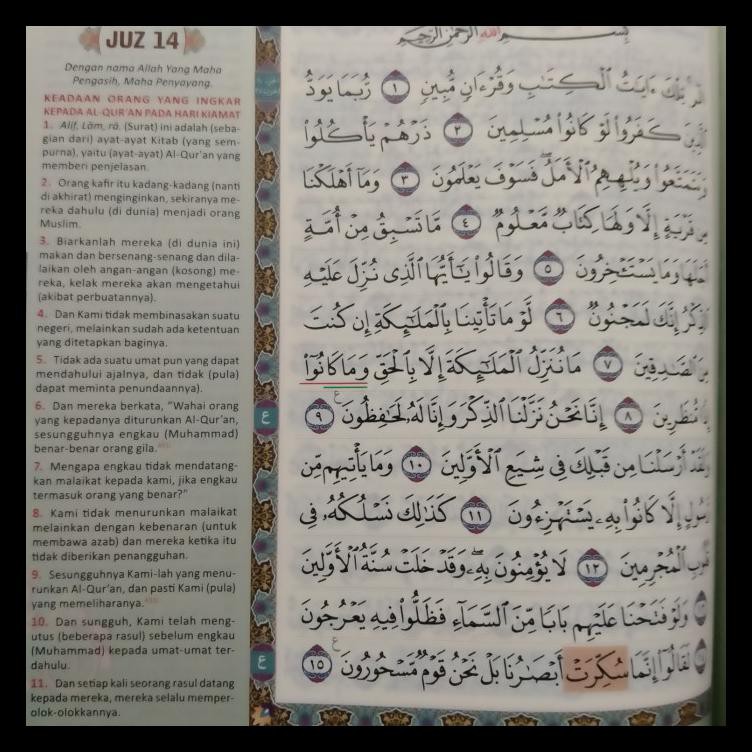 JUZ 14
Dengan nama Allah Yang Maha
Pengasih, Maha Penyayang.
KEADAAN ORANG YANG INGKAR
KEPADA AL-QUR'AN PADA HARI KIAMAT
1. Alif, Lām, rā. (Surat) ini adalah (seba-
gian dari) ayat-ayat Kitab (yang sem-
purna), yaitu (ayat-ayat) Al-Qur'an yang
memberi penjelasan.
2. Orang kafir itu kadang-kadang (nanti
di akhirat) menginginkan, sekiranya me-
reka dahulu (di dunia) menjadi orang
Muslim.
3. Biarkanlah mereka (di dunia ini)
makan dan bersenang-senang dan dila-
laikan oleh angan-angan (kosong) me-
reka, kelak mereka akan mengetahui
(akibat perbuatannya).
4. Dan Kami tidak membinasakan suatu
negeri, melainkan sudah ada ketentuan
yang ditetapkan baginya.
5. Tidak ada suatu umat pun yang dapat
mendahului ajalnya, dan tidak (pula)
dapat meminta penundaan(nya).
6. Dan mereka berkata, "Wahai orang
yang kepadanya diturunkan Al-Qur'an,
sesungguhnya engkau (Muhammad)
benar-benar orang gila.
7. Mengapa engkau tidak mendatang-
kan malaikat kepada kami, jika engkau
termasuk orang yang benar?"
8. Kami tidak menurunkan malaikat
melainkan dengan kebenaran (untuk
membawa azab) dan mereka ketika itu
tidak diberikan penangguhan.
9. Sesungguhnya Kami-lah yang menu-
runkan Al-Qur'an, dan pasti Kami (pula)
yang memeliharanya.
10. Dan sungguh, Kami telah meng-
utus (beberapa rasul) sebelum engkau
(Muhammad) kepada umat-umat ter-
dahulu.
11. Dan setiap kali seorang rasul datang
kepada mereka, mereka selalu memper-
olok-olokkannya.
بِسْمِ اللَّهِ الرَّحْمَٰنِ الرَّحِيمِ
الٓرۚ تِلْكَ ءَايَٰتُ ٱلْكِتَٰبِ وَقُرْءَانٍ مُّبِينٍ ١ رُّبَمَا يَوَدُّ
ٱلَّذِينَ كَفَرُوا۟ لَوْ كَانُوا۟ مُسْلِمِينَ ٢ ذَرْهُمْ يَأْكُلُوا۟
وَيَتَمَتَّعُوا۟ وَيُلْهِهِمُ ٱلْأَمَلُۖ فَسَوْفَ يَعْلَمُونَ ٣ وَمَآ أَهْلَكْنَا
مِن قَرْيَةٍ إِلَّا وَلَهَا كِتَابٌ مَّعْلُومٌ ٤ مَّا تَسْبِقُ مِنْ أُمَّةٍ
أَجَلَهَا وَمَا يَسْتَـْٔخِرُونَ ٥ وَقَالُوا۟ يَٰٓأَيُّهَا ٱلَّذِى نُزِّلَ عَلَيْهِ
ٱلذِّكْرُ إِنَّكَ لَمَجْنُونٌ ٦ لَّوْ مَا تَأْتِينَا بِٱلْمَلَٰٓئِكَةِ إِن كُنتَ
مِنَ ٱلصَّٰدِقِينَ ٧ مَا نُنَزِّلُ ٱلْمَلَٰٓئِكَةَ إِلَّا بِٱلْحَقِّ وَمَا كَانُوٓا۟
إِذًا مُّنظَرِينَ ٨ إِنَّا نَحْنُ نَزَّلْنَا ٱلذِّكْرَ وَإِنَّا لَهُۥ لَحَٰفِظُونَ ٩
ع
وَلَقَدْ أَرْسَلْنَا مِن قَبْلِكَ فِى شِيَعِ ٱلْأَوَّلِينَ ١٠ وَمَا يَأْتِيهِم مِّن
رَّسُولٍ إِلَّا كَانُوا۟ بِهِۦ يَسْتَهْزِءُونَ ١١ كَذَٰلِكَ نَسْلُكُهُۥ فِى
قُلُوبِ ٱلْمُجْرِمِينَ ١٢ لَا يُؤْمِنُونَ بِهِۦۖ وَقَدْ خَلَتْ سُنَّةُ ٱلْأَوَّلِينَ
وَلَوْ فَتَحْنَا عَلَيْهِم بَابًا مِّنَ ٱلسَّمَآءِ فَظَلُّوا۟ فِيهِ يَعْرُجُونَ
لَقَالُوٓا۟ إِنَّمَا سُكِّرَتْ أَبْصَٰرُنَا بَلْ نَحْنُ قَوْمٌ مَّسْحُورُونَ ١٥
ع